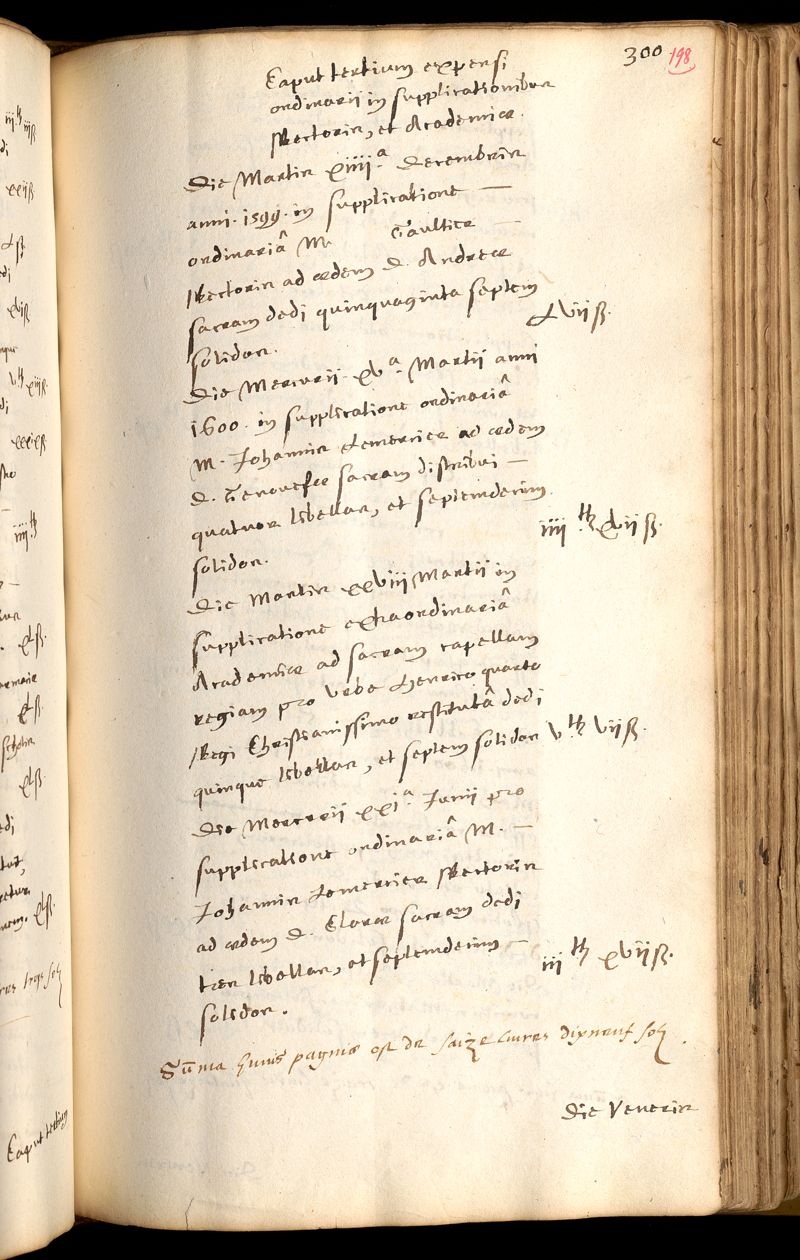 300 198
Caput tertium expensi
ordinarii in supplicationibus
Rectoris, et Academiae.
Die Martis xiiii.ª Decembris
anni. 1599. in supplicatione —
ordinariâ M. Gaultier —
Rectoris ad aedem D. Andreae
sacram dedi quinquaginta septem
solidos. Lvii ß.
Die Mercurii xv.ª Martii anni
1600. in supplicatione ordinariâ
M. Johannis Lemercier ad aedem
D. Genovefae sacram distribui —
quatuor libellas, et septemdecim
solidos. iiii ℔ xvii ß.
Die Martis xxviii Martii in
supplicatione extraordinariâ
Academiae ad sacram capellam
regiam pro Urbe Henrico quarto
Regi Christianissimo restitutâ dedi
quinque libellas, et septem solidos v ℔ vii ß.
Die Mercurii xxi.ª Junii pro
supplicatione ordinariâ M. —
Johannis Lemercier Rectoris
ad aedem D. Clarae sacram dedi
tres libellas, et septemdecim —
solidos. iii ℔ xvii ß.
Sūma huius paginae est de saize livres dixneuf solz.
Die Veneris